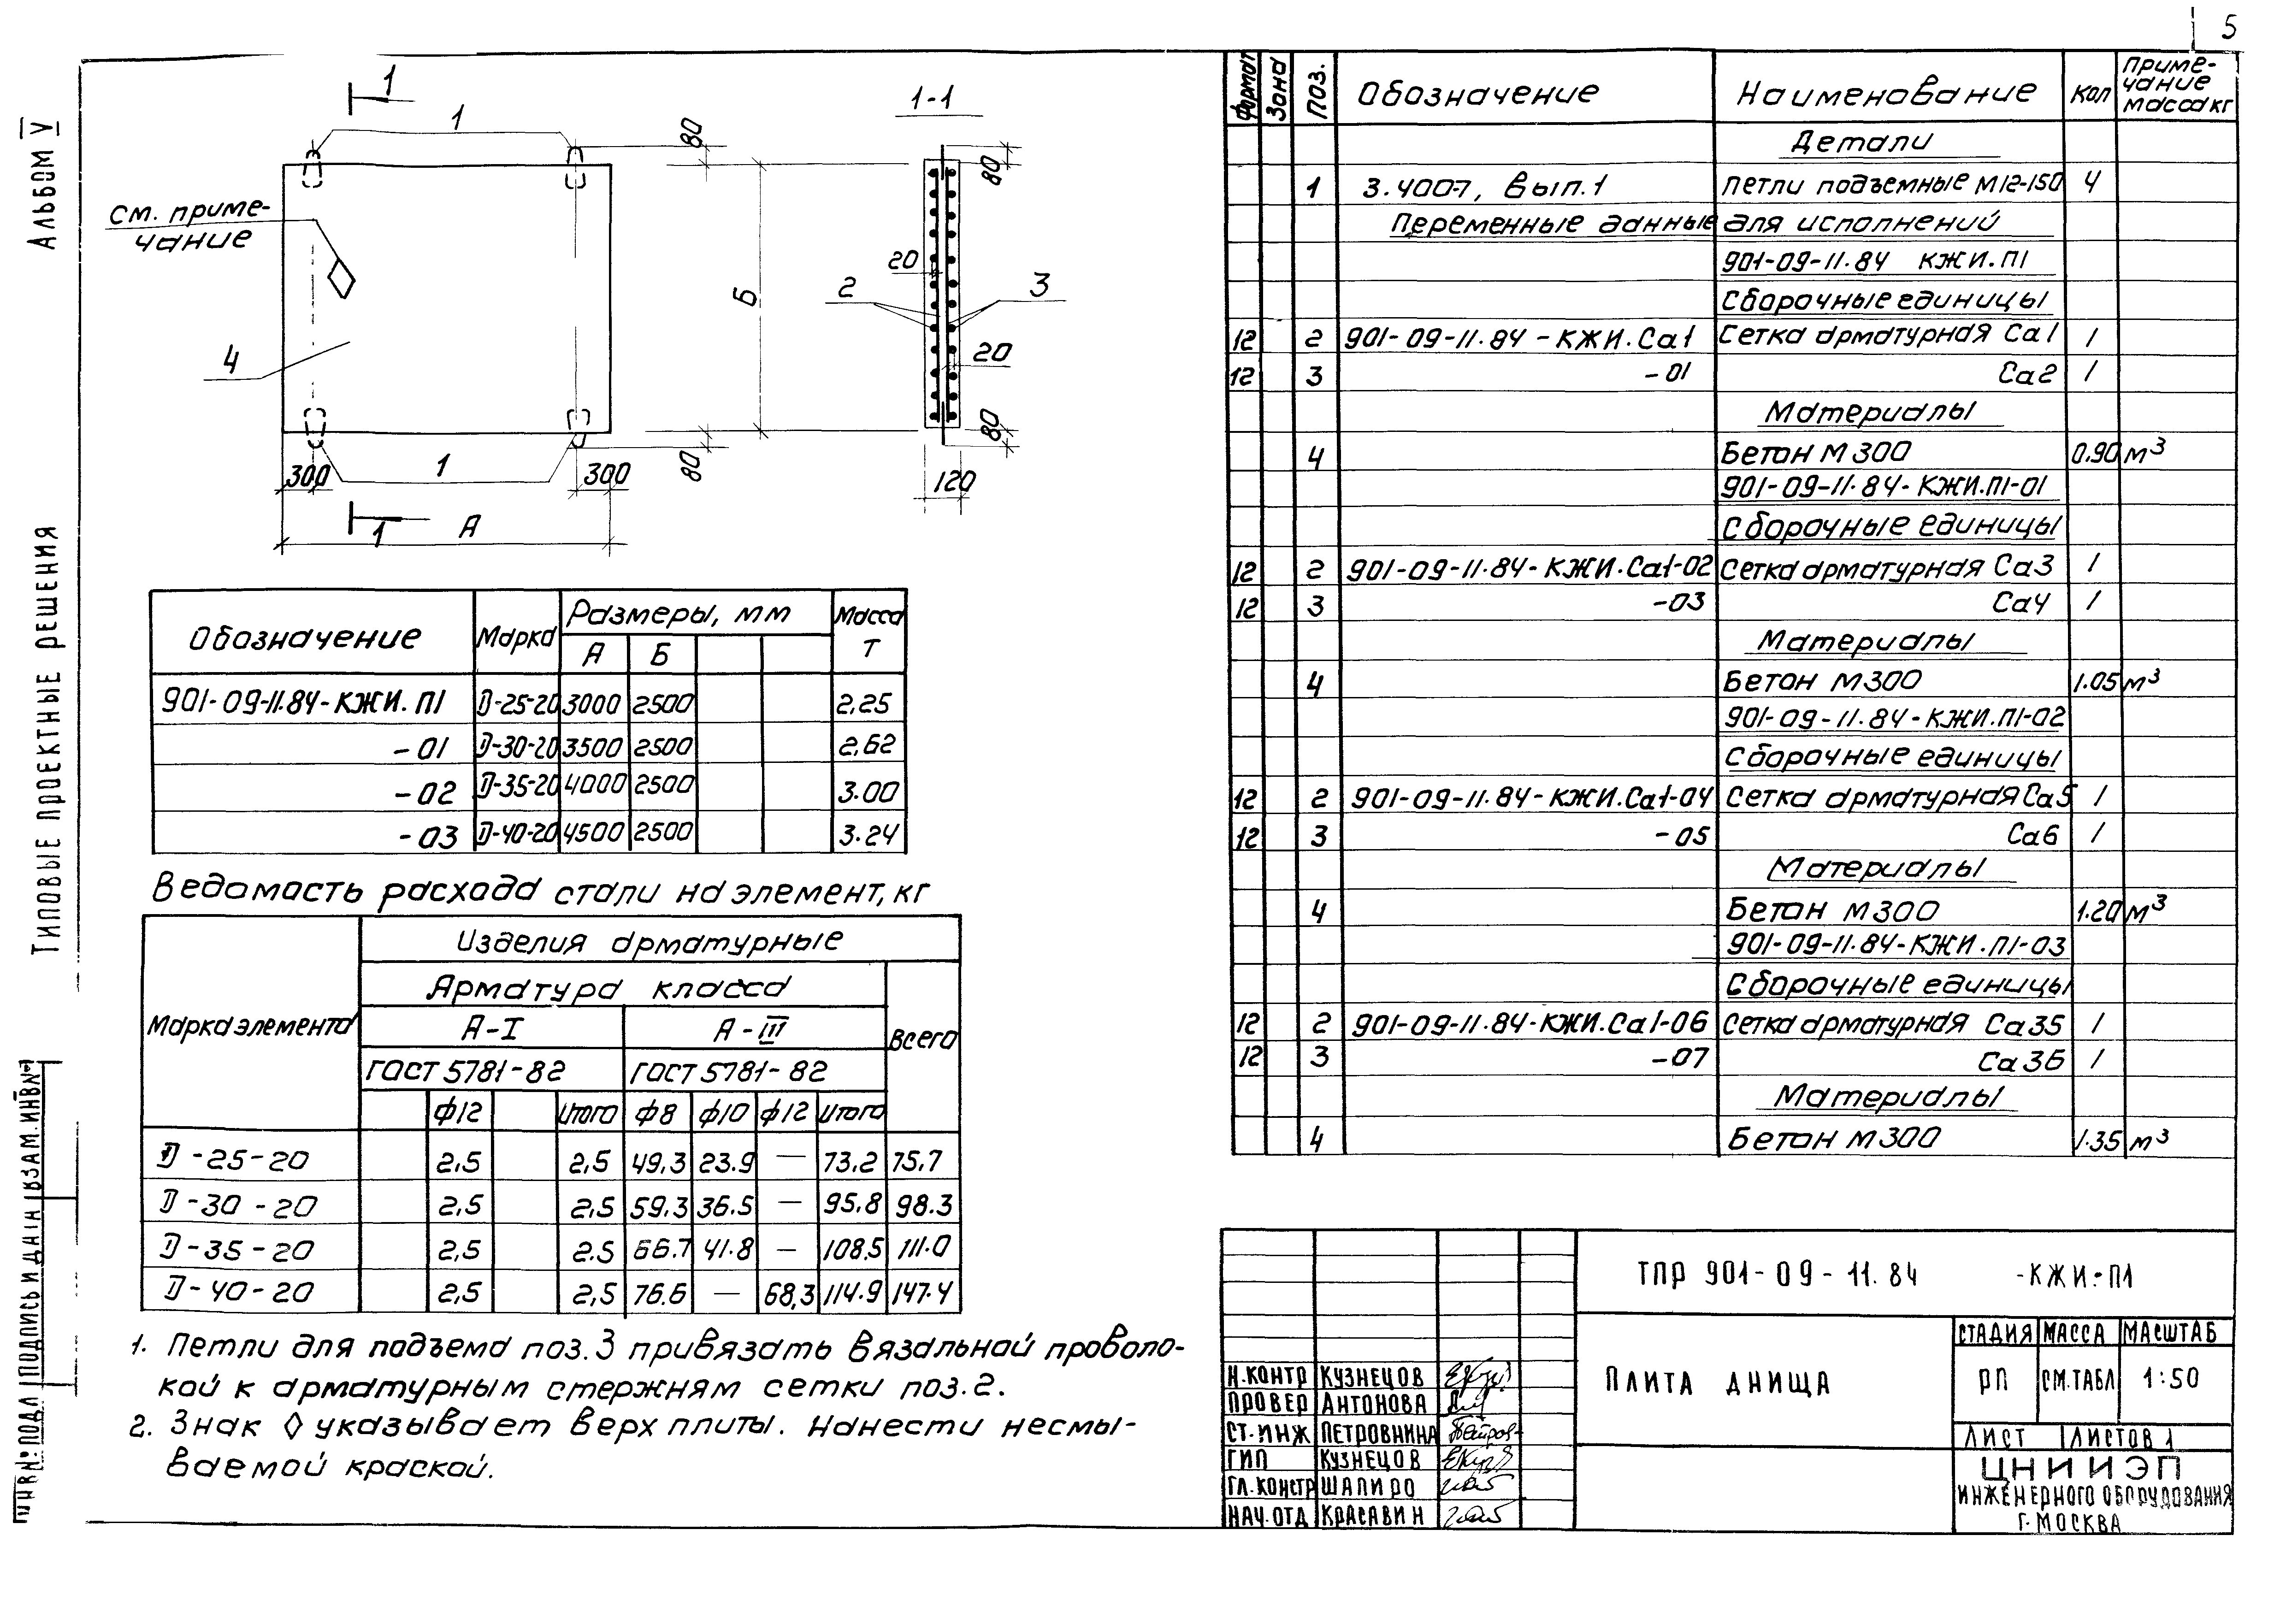 5
Альбом V
Типовые проектные решения
1
1
80
см. приме-
чание
4
Б
80
300
1
300
1
А
1-1
80
20
2
3
20
80
120
Обозначение Марка Размеры, мм Масса т
А Б
901-09-11.84-КЖИ.П1 D-25-20 3000 2500 2,25
-01 D-30-20 3500 2500 2,62
-02 D-35-20 4000 2500 3.00
-03 D-40-20 4500 2500 3.24
Ведомость расхода стали на элемент, кг
Марка элемента Изделия арматурные
Арматура класса Всего
А-I А-III
ГОСТ 5781-82 ГОСТ 5781-82
ф12 Итого ф8 ф10 ф12 Итого
D-25-20 2,5 2,5 49,3 23.9 — 73,2 75,7
D-30-20 2,5 2,5 59,3 36.5 — 95,8 98.3
D-35-20 2,5 2.5 66.7 41.8 — 108.5 111.0
D-40-20 2,5 2,5 76.6 — 68,3 114.9 147.4
1. Петли для подъема поз.3 привязать вязальной проволо-
кой к арматурным стержням сетки поз.2.
2. Знак ◊ указывает верх плиты. Нанести несмы-
ваемой краской.
Формат Зона Поз. Обозначение Наименование Кол Приме-
чание
масса кг
Детали
1 3.400-7, вып.1 Петли подъемные М12-150 4
Переменные данные для исполнений
901-09-11.84 КЖИ.П1
Сборочные единицы
12 2 901-09-11.84-КЖИ.Са1 Сетка арматурная Са1 1
12 3 -01 Са2 1
Материалы
4 Бетон М300 0.90 м3
901-09-11.84-КЖИ.П1-01
Сборочные единицы
12 2 901-09-11.84-КЖИ.Са1-02 Сетка арматурная Са3 1
12 3 -03 Са4 1
Материалы
4 Бетон М300 1.05 м3
901-09-11.84-КЖИ.П1-02
Сборочные единицы
12 2 901-09-11.84-КЖИ.Са1-04 Сетка арматурная Са5 1
12 3 -05 Са6 1
Материалы
4 Бетон М300 1.20 м3
901-09-11.84-КЖИ.П1-03
Сборочные единицы
12 2 901-09-11.84-КЖИ.Са1-06 Сетка арматурная Са35 1
12 3 -07 Са36 1
Материалы
4 Бетон М300 1.35 м3
ТПР 901-09-11.84 -КЖИ.П1
Плита днища
Стадия Масса Масштаб
РП См.табл 1:50
Лист Листов 1
ЦНИИЭП
инженерного оборудования
г.Москва
Н.контр Кузнецов
Провер Антонова
Ст.инж Петровнина
ГИП Кузнецов
Гл.констр Шапиро
Нач.отд Красавин
Инв.№подл Подпись и дата Взам.инв№